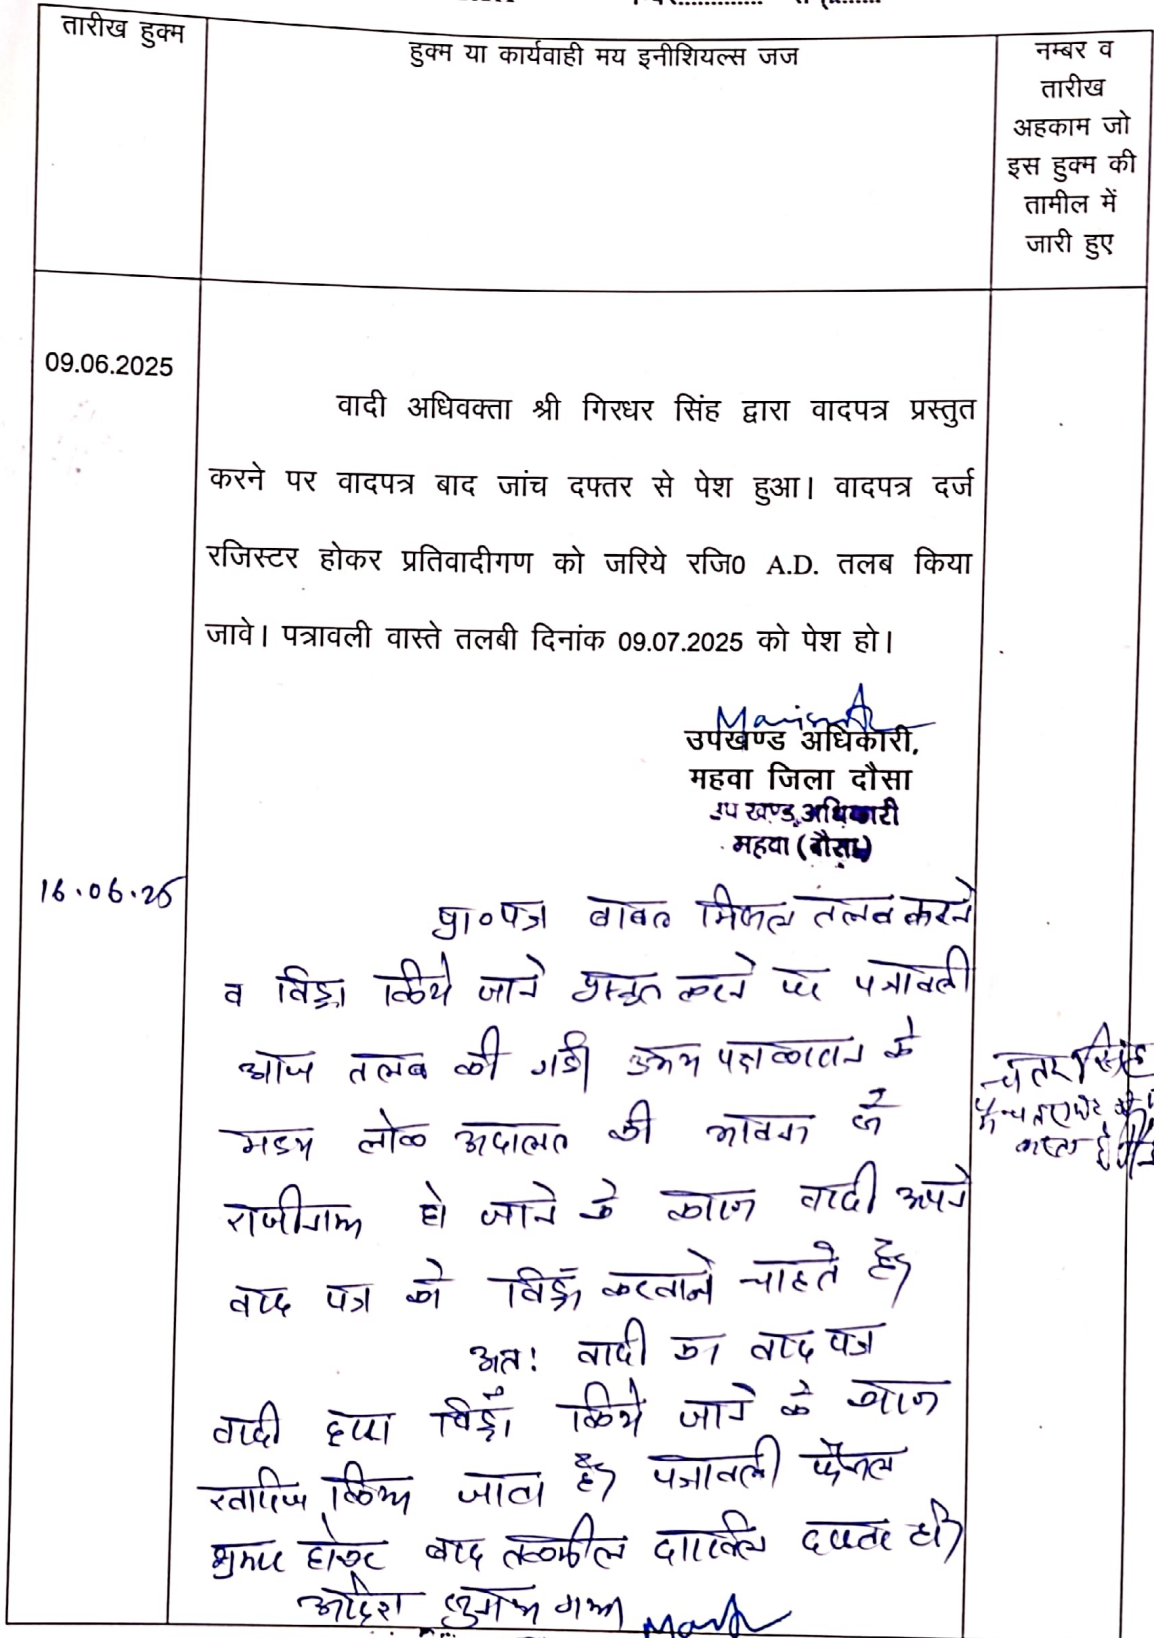 तारीख हुक्म
हुक्म या कार्यवाही मय इनीशियल्स जज
नम्बर व
तारीख
अहकाम जो
इस हुक्म की
तामील में
जारी हुए
09.06.2025
वादी अधिवक्ता श्री गिरधर सिंह द्वारा वादपत्र प्रस्तुत
करने पर वादपत्र बाद जांच दफ्तर से पेश हुआ। वादपत्र दर्ज
रजिस्टर होकर प्रतिवादीगण को जरिये रजि0 A.D. तलब किया
जावे। पत्रावली वास्ते तलबी दिनांक 09.07.2025 को पेश हो।
उपखण्ड अधिकारी,
महवा जिला दौसा
उप खण्ड अधिकारी
महवा (दौसा)
16.06.25
प्रा०पत्र बाबत मिसल तलब करने
व विड्रा किये जाने प्रस्तुत करने पर पत्रावली
आज तलब की गई। उभय पक्षकारान के
मध्य लोक अदालत की भावना से
राजीनामा हो जाने के कारण वादी अपने
वाद पत्र को विड्रॉ करवाने चाहते है।
अत: वादी का वाद पत्र
वादी द्वारा विड्रॉ किये जाने के कारण
खारिज किया जाता है। पत्रावली फैसल
शुमार होकर बाद तकमील दाखिल दफ्तर हो।
आदेश सुनाया गया
चेतर सिंह